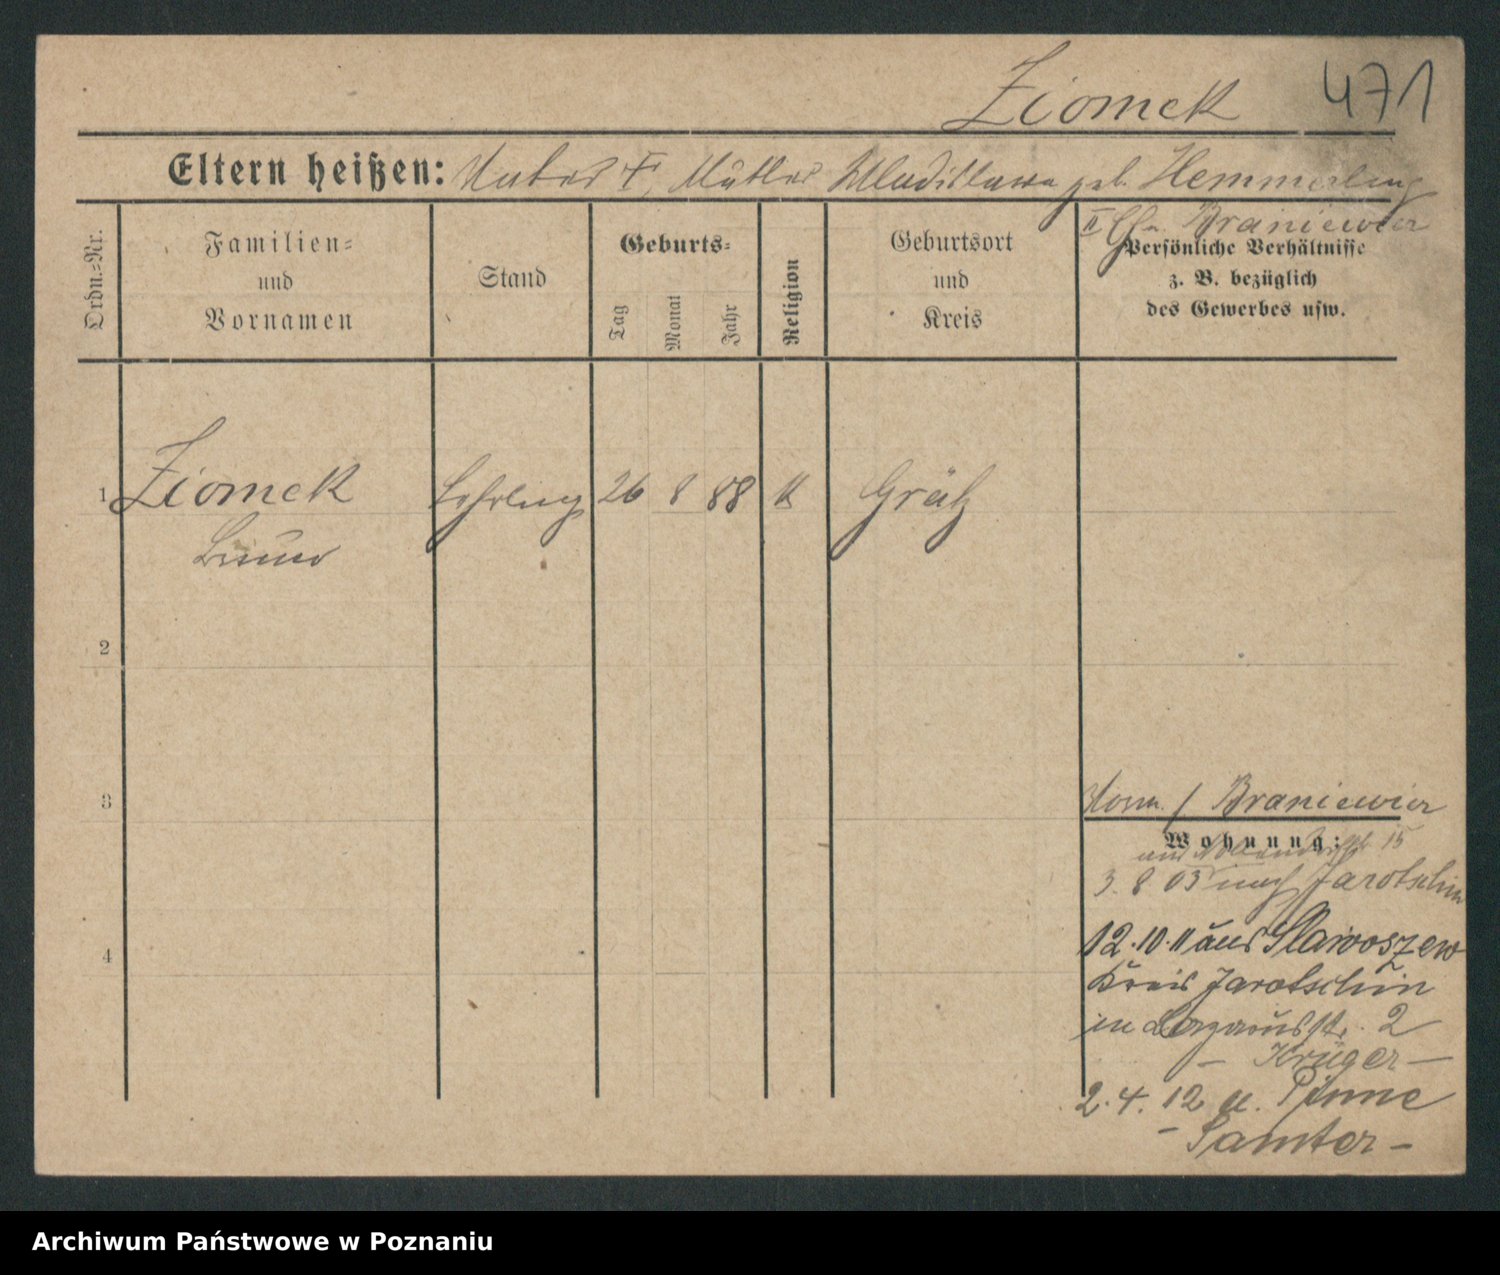 Ziomek 471
Eltern heißen: Vater †, Mutter Wladislawa geb. Hemmerling
II Ehe. Braniewicz
Ordn.-Nr.
Familien-
und
Vornamen
Stand
Geburts-
Tag
Monat
Jahr
Religion
Geburtsort
und
Kreis
Persönliche Verhältnisse
z. B. bezüglich
des Gewerbes usw.
1 Ziomek Lehrling 26 8 88 K Grätz
Bruno
2
3
Vorm. / Braniewicz
Wohnung:
15
3. 8 03 nach Jarotschin
4
12.10.11 aus Slawoszew
Kreis Jarotschin
in Lazarusstr. 2
– Krüger –
2. 4. 12 n. Pinne
– Samter –
Archiwum Państwowe w Poznaniu